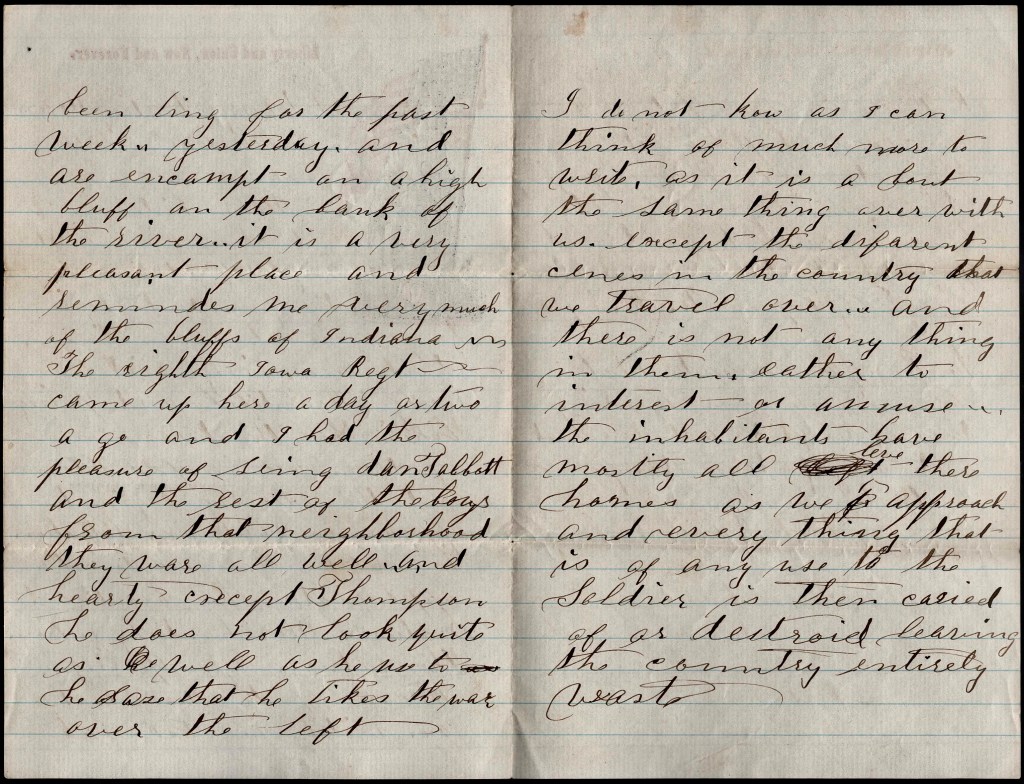 Liberty and Union, Now and Forever.
been ling for the past
week. yesterday. and
are encampt on a high
bluff on the bank of
the river.. it is a very
pleasant place and
remindes me very much
of the bluffs of Indiana
The eighth Iowa Regt
came up here a day or two
a go and I had the
pleasure of seing dan Talbott
and the rest of the boys
from that neighborhood
they ware all well and
hearty except Thompson
he does not look quite
as well as he use to
he saze that he likes the war
over the left
I do not kow as I can
think of much more to
write. as it is a bout
the same thing over with
us. except the difarent
cenes in the country that
we travel over.. and
there is not any thing
in them. eather to
interest or amuse..
the inhabitants have
mostly all leve there
homes as we approach
and every thing that
is of any use to the
Soldier is then caried
of or destroid leaving
the country entirely
waste